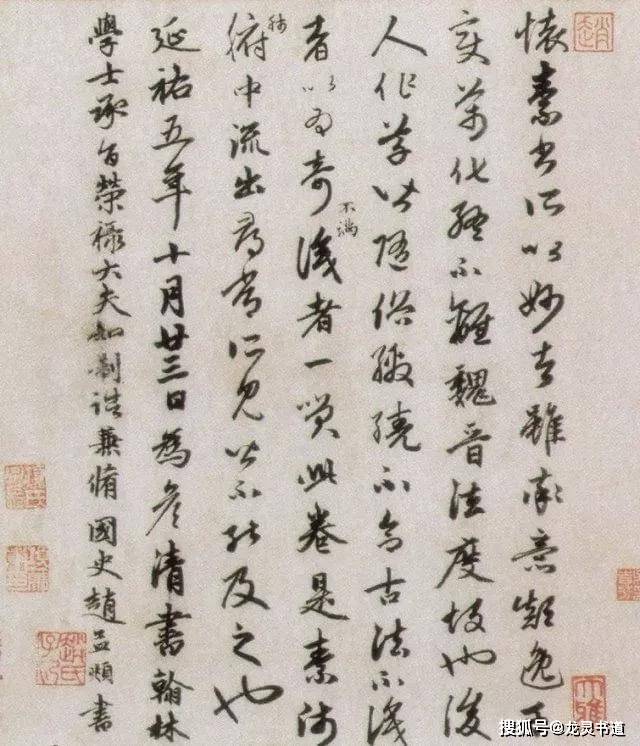 懷素書所以妙者雖率意顛逸千
變萬化終不離魏晉法度故也後
人作草皆隨俗繳繞不合古法不識
者以為奇不滿識者一笑此卷是素師
肺腑中流出尋常所見皆不能及之也
延祐五年十月廿三日為彥清書翰林
學士承旨榮祿大夫知制誥兼脩國史趙孟頫書
趙
大雅
趙氏子昂
搜狐号@龙灵书道